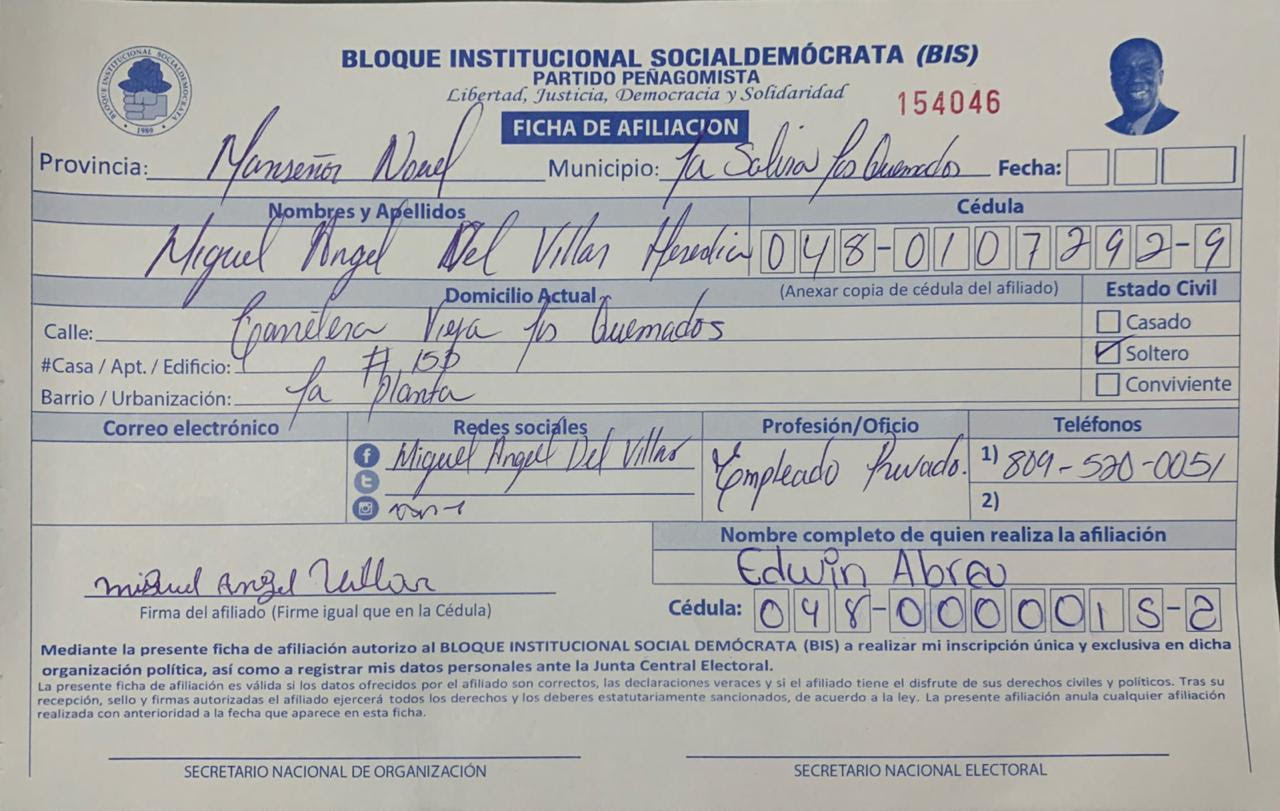 BLOQUE INSTITUCIONAL SOCIALDEMÓCRATA (BIS)
PARTIDO PEÑAGOMISTA
Libertad, Justicia, Democracia y Solidaridad
154046
BLOQUE INSTITUCIONAL SOCIALDEMOCRATA
1989
FICHA DE AFILIACION
Provincia: Manseñor Nouel Municipio: La Salvia Los Quemados Fecha:
Nombres y Apellidos Cédula
Miguel Angel Del Villar Heredia 048-0107292-9
Domicilio Actual (Anexar copia de cédula del afiliado) Estado Civil
Calle: Carretera Vieja Los Quemados Casado
#Casa / Apt. / Edificio: # 15 Soltero
Barrio / Urbanización: La Planta Conviviente
Correo electrónico Redes sociales Profesión/Oficio Teléfonos
Miguel Angel Del Villar Empleado Privado. 1) 809-520-0051
2)
Nombre completo de quien realiza la afiliación
Edwin Abreu
Miguel Angel Villar
Firma del afiliado (Firme igual que en la Cédula) Cédula: 048-0000015-2
Mediante la presente ficha de afiliación autorizo al BLOQUE INSTITUCIONAL SOCIAL DEMÓCRATA (BIS) a realizar mi inscripción única y exclusiva en dicha
organización política, así como a registrar mis datos personales ante la Junta Central Electoral.
La presente ficha de afiliación es válida si los datos ofrecidos por el afiliado son correctos, las declaraciones veraces y si el afiliado tiene el disfrute de sus derechos civiles y políticos. Tras su
recepción, sello y firmas autorizadas el afiliado ejercerá todos los derechos y los deberes estatutariamente sancionados, de acuerdo a la ley. La presente afiliación anula cualquier afiliación
realizada con anterioridad a la fecha que aparece en esta ficha.
SECRETARIO NACIONAL DE ORGANIZACIÓN SECRETARIO NACIONAL ELECTORAL